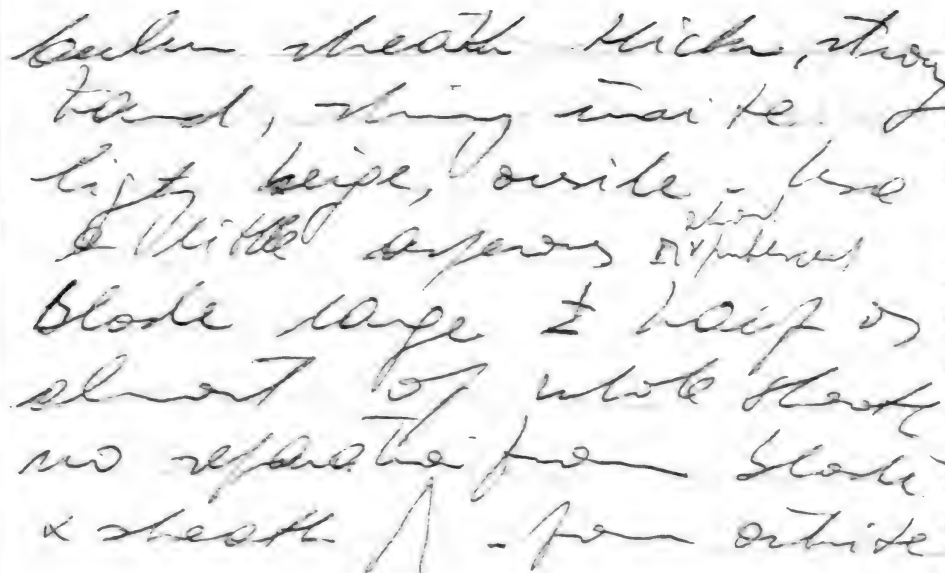 culm sheath thick, strong
tand, shiny inside
ligt beige, ouside - base
a little
blade large ± half or
almost of whole sheath
no separation from blade
& sheath - from outside